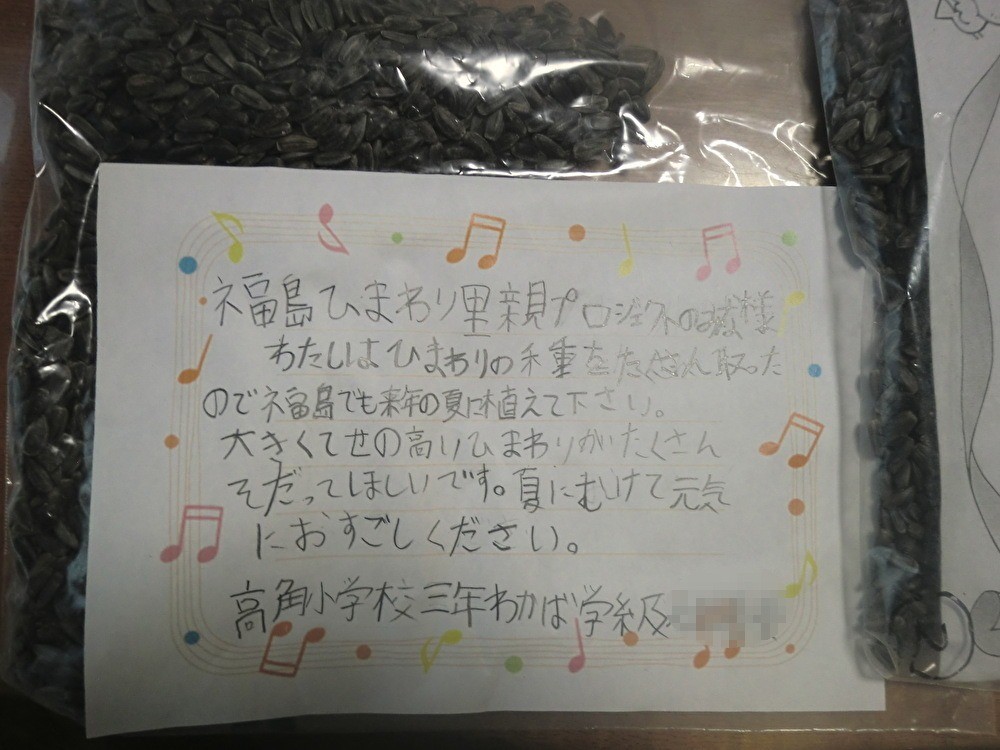 福島ひまわり里親プロジェクトの皆様
わたしはひまわりの種をたくさん取った
ので福島でも来年の夏に植えて下さい。
大きくてせの高いひまわりがたくさん
そだってほしいです。夏にむけて元気
におすごしください。
高角小学校三年わかば学級